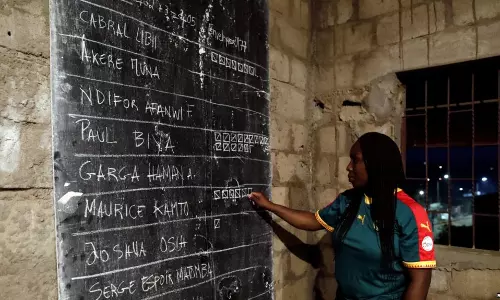 CABRAL LIBII
AKERE MUNA
NDIFOR AFANWI F.
PAUL BIYA
GARGA HAMAN A.
MAURICE KAMTO
JOSHUA OSIH
SERGE ESPOIR MATOMBA